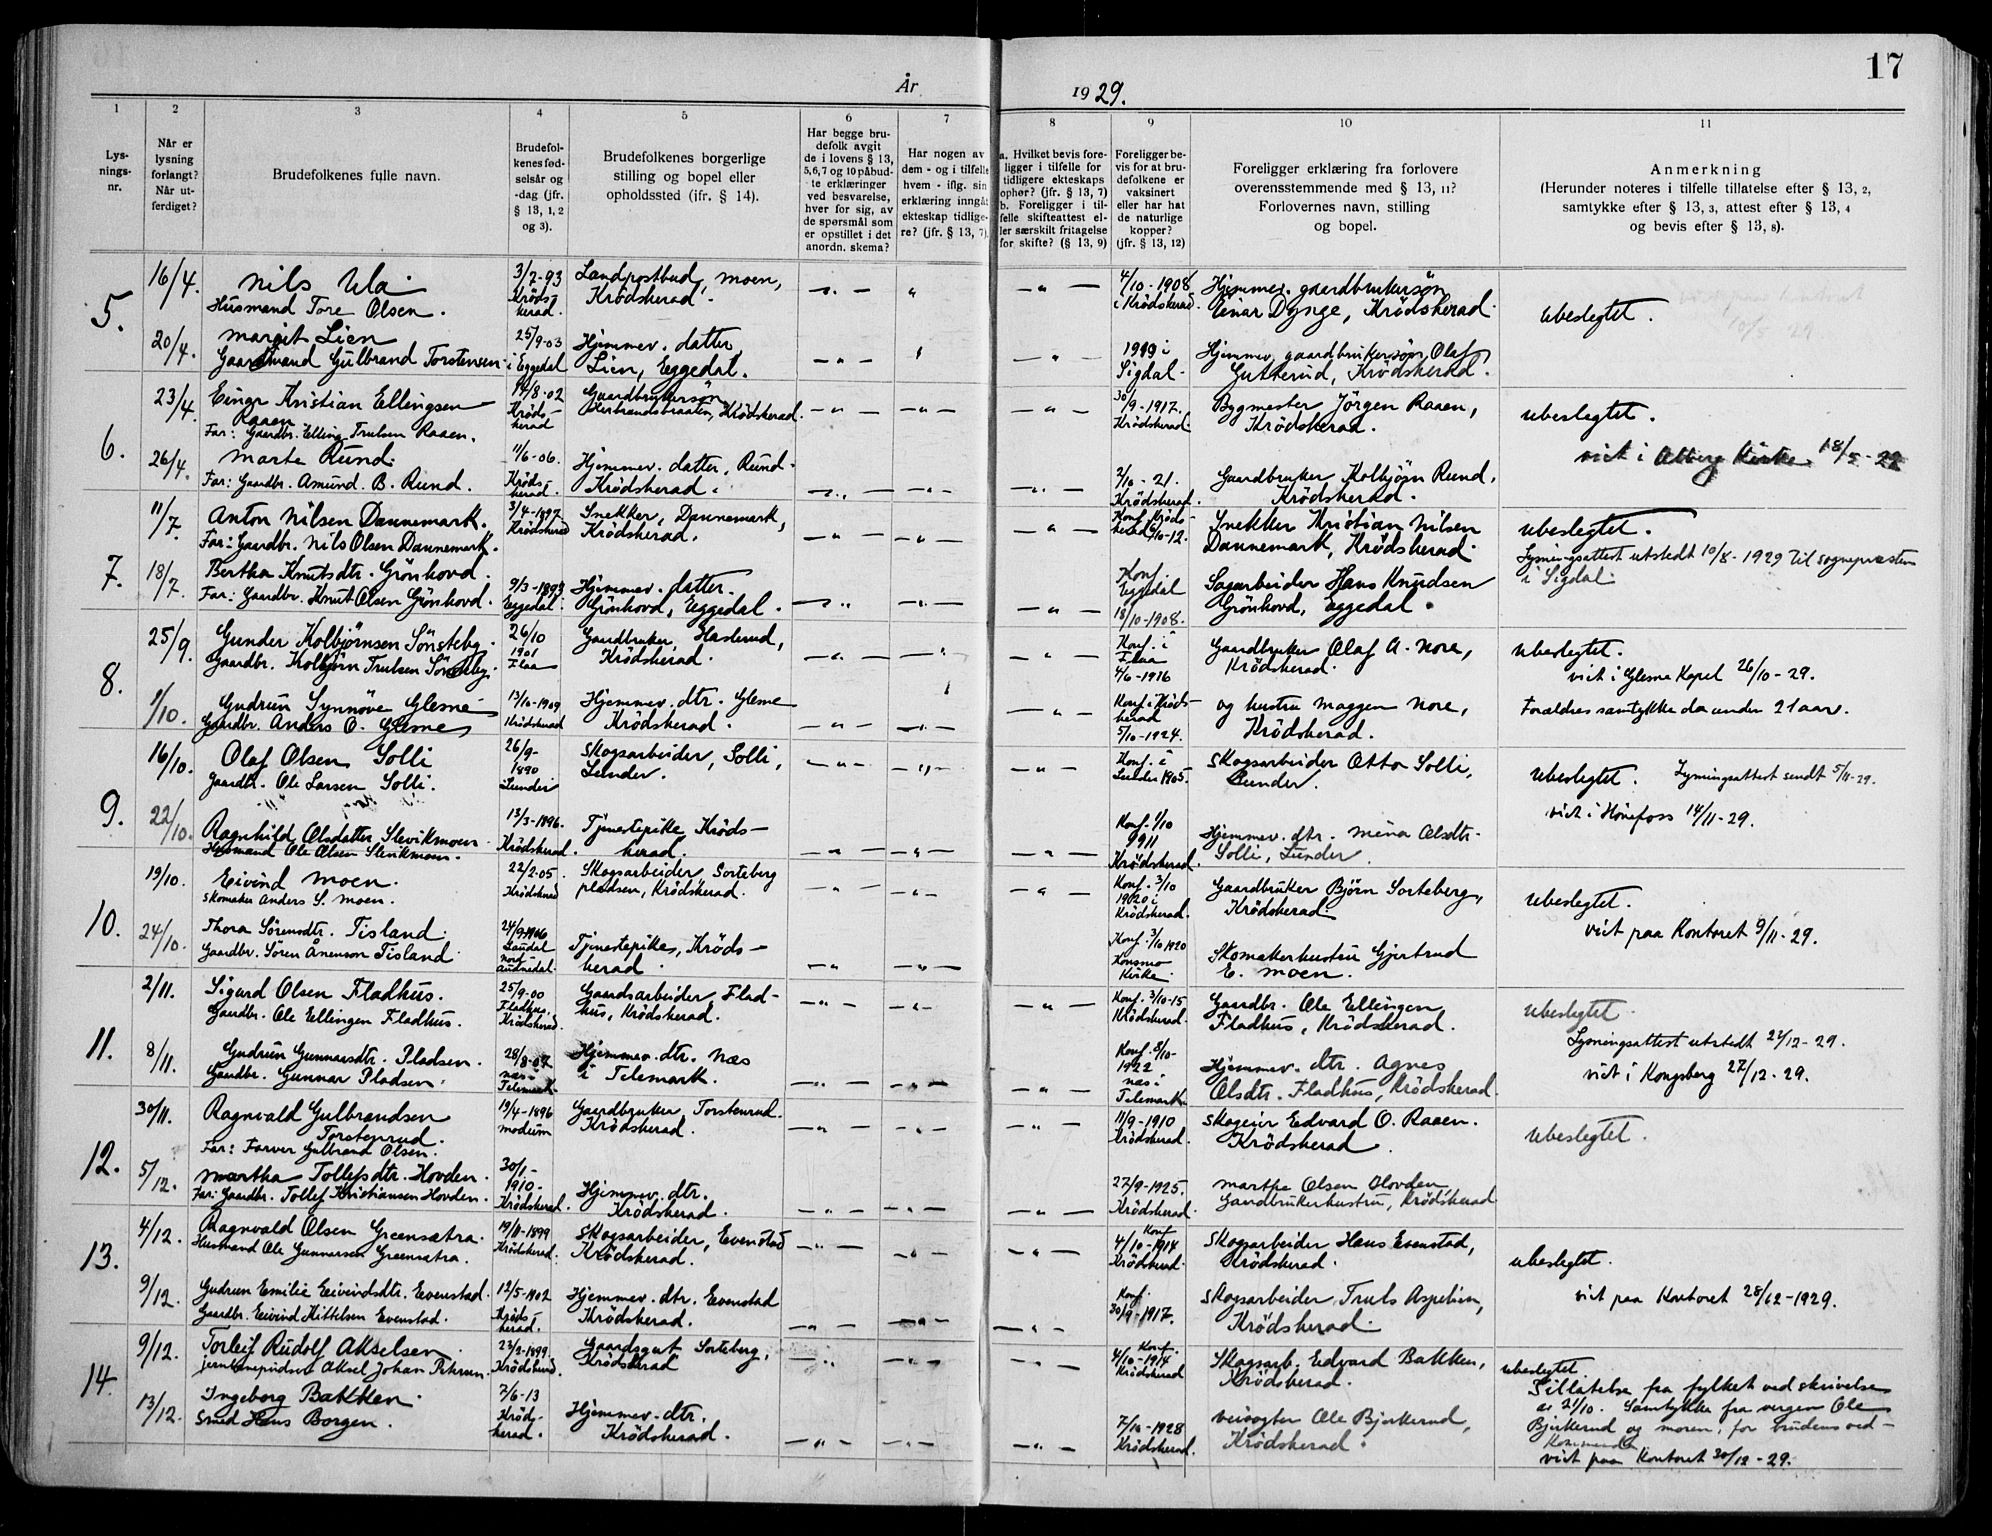 År 1929.
17
1
Lys-
nings-
nr.
2
Når er
lysning
forlangt?
Når ut-
ferdiget?
3
Brudefolkenes fulle navn.
4
Brudefol-
kenes fød-
selsår og
-dag (jfr.
§ 13, 1, 2
og 3).
5
Brudefolkenes borgerlige
stilling og bopel eller
opholdssted (ifr. § 14).
6
Har begge bru-
defolk avgit
de i lovens § 13,
5, 6, 7 og 10 påbud-
te erklæringer
ved besvarelse,
hver for sig, av
de spørsmål som
er opstillet i det
anordn. skema?
7
Har nogen av
dem - og i tilfelle
hvem - iflg. sin
erklæring inngåt
ekteskap tidlige-
re? (jfr. § 13, 7)
8
a. Hvilket bevis fore-
ligger i tilfelle for
tidligere ekteskaps
ophør? (jfr. § 13, 7)
b. Foreligger i til-
felle skifteattest el-
ler særskilt fritagelse
for skifte? (§ 13, 9)
9
Foreligger be-
vis for at bru-
defolkene er
vaksinert
eller har hat
de naturlige
kopper?
(jfr. § 13, 12)
10
Foreligger erklæring fra forlovere
overensstemmende med § 13, 11?
Forlovernes navn, stilling
og bopel.
11
Anmerkning
(Herunder noteres i tilfelle tillatelse efter § 13, 2,
samtykke efter § 13, 3, attest efter § 13, 4
og bevis efter § 13, 8).
5.
16/4.
Nils Ula
Husmand Tore Olsen.
3/2-93
Kröds-
herad.
Landpostbud, Moen,
Krödsherad.
4/10-1908
i Krödsherad.
Hjemmev. gaardbrukersøn
Einar Dynge, Krödsherad.
ubeslegtet.
20/4.
Margit Lien
Gaardmand Gulbrand Torstensen
25/9-03
i Eggedal
Hjemmev. datter
Lien, Eggedal.
1919 i
Sigdal.
Hjemmev. gaardbrukersøn Olaf
Gutterud, Krödsherad.
6.
23/4.
Einar Kristian Ellingsen
Raaen
Far: Gaardbr. Elling Trulsen Raaen.
14/8-02
Kröds-
herad
Gaardbrukersøn
Herbrandsbraaten, Krödsherad.
30/9-1917.
Krödsherad.
Bygmester Jörgen Raaen,
Krödsherad.
ubeslegtet.
viet i Olberg Kirke 18/5-29
26/4.
Marte Rund
Far: Gaardbr. Amund B. Rund.
11/6-06.
Kröds-
herad.
Hjemmev. datter, Rund
Krödsherad.
2/10-21.
Krödsherad.
Gaardbruker Kolbjörn Rund.
Krödsherad.
7.
11/7.
Anton Nilsen Dannemark.
Far: Gaardbr. Nils Olsen Dannemark.
3/4-1897
Krödsherad
Snekker, Dannemark,
Krödsherad.
Konf. Kröds-
herad 6/10-12.
Snekker Kristian Nilsen
Dannemark, Krödsherad.
ubeslegtet.
Lysningsattest utstedt 10/8-1929 til sogneprœsten
i Sigdal.
18/7.
Bertha Knutsdtr. Grönhovd.
Far: Gaardbr. Knut Olsen Grönhovd.
9/3-1893
Eggedal.
Hjemmev. datter.
Grönhovd, Eggedal.
Konf.
Eggedal
18/10-1908.
Sagarbeider Hans Knudsen
Grönhovd, Eggedal.
8.
25/9.
Gunder Kolbjørnsen Sönsteby.
Gaardbr. Kolbjørn Trulsen Sönsteby.
26/10
1901
Flaa
Gaardbruker, Haslerud,
Krödsherad.
Konf. i
Flaa
4/6-1916
Gaardbruker Olaf A. Nore,
Krödsherad.
ubeslegtet.
viet i Glesne Kapel 26/10-29.
1/10.
Gudrun Synnöve Glesne
Gaardbr. Anders O. Glesne
13/10-1909
Krödsherad
Hjemmev. dtr. Glesne
Krödsherad.
Konf. i Kröds-
herad
5/10-1924.
og hustru Maggen Nore,
Krödsherad.
Forældres samtykke da under 21 aar.
9.
16/10.
Olaf Olsen Solli
Gaardbr. Ole Larsen Solli.
26/9-
1890
Lunder
Skogsarbeider, Solli,
Lunder.
Konf. i
Lunder 1905.
Skogsarbeider Otto Solli,
Lunder.
ubeslegtet. Lysningsattest sendt 5/11-29.
viet i Hönefoss 14/11-29.
22/10.
Ragnhild Olsdatter Slevikmoen
Husmand Ole Olsen Slevikmoen.
13/3-1896.
Krödsherad.
Tjenestepike Kröds-
herad.
Konf. 1/10
1911
Krödsherad.
Hjemmev. dtr. Mina Olsdtr.
Solli, Lunder.
10.
19/10.
Eivind Moen.
Skomaker Anders S. Moen.
22/2-05.
Krödsherad
Skogsarbeider Sorteberg
pladsen, Krödsherad.
Konf. 3/10
1920 i
Krödsherad.
Gaardbruker Björn Sorteberg,
Krödsherad.
ubeslegtet.
viet paa Kontoret 9/11-29.
24/10.
Thora Sörensdtr. Tisland.
Gaardbr. Sören Ånenson Tisland
24/9-1906
Laudal
Nord-
Audnedal.
Tjenestepike, Kröds-
herad.
Konf. 3/10 1920
Konsmo
Kirke.
Skomakerhustru Gjertrud
E. Moen.
11.
2/11.
Sigurd Olsen Fladhus.
Gaardbr. Ole Ellingen Fladhus.
25/9-00
Fladhus,
Krödsherad.
Gaardsarbeider, Flad-
hus, Krödsherad.
Konf. 3/10-15
Krödsherad.
Gaardbr. Ole Ellingen
Fladhus, Krödsherad.
ubeslegtet.
Lysningsattest utstedt 21/12-29.
viet i Kongsberg 27/12-29.
8/11.
Gudrun Gunnarsdtr. Pladsen.
Gaardbr. Gunnar Pladsen.
28/8-07
Næs i
Telemark.
Hjemmev. dtr. Næs
i Telemark.
Konf. 8/10-
1922
Næs i
Telemark.
Hjemmev. dtr. Agnes
Olsdtr. Fladhus, Krödsherad.
12.
30/11.
Ragnvald Gulbrandsen
Torstenrud.
Far: Farver Gulbrand Olsen.
19/4-1896
Modum
Gaardbruker, Torstenrud.
Krödsherad.
11/9-1910
Krödsherad.
Skogeier Edvard O. Raaen.
Krödsherad.
ubeslegtet.
5/12.
Martha Tollefsdtr. Hovden.
Far: Gaardbr. Tollef Kristiansen Hovden.
30/1-
1910-
Krödsherad.
Hjemmev. dtr.
Krödsherad.
27/9-1925.
Krödsherad.
Marthe Olsen Hovden
Gaardbrukerhustru, Krödsherad
13.
4/12.
Ragnvald Olsen Greensætra.
Husmand Ole Gunnarsen Greensætra.
19/11-1899
Krödsherad.
Skogsarbeider, Evenstad
Krödsherad.
Konf
4/10-1914
Krödsherad.
Skogsarbeider Hans Evenstad,
Krödsherad.
ubeslegtet.
viet paa Kontoret 28/12-1929.
9/12.
Gudrun Emilie Eivindsdtr. Evenstad.
Gaardbr. Eivind Kittelsen Evenstad.
12/5-1902
Kröds-
herad.
Hjemmev. dtr. Evenstad
Krödsherad.
Konf.
30/9-1917.
Skogsarbeider Truls Aspelien,
Krödsherad.
14.
9/12.
Torleif Rudolf Akselsen
Aksel Johan Petersen.
23/2-1899.
Krödsherad.
Gaardsgut Sorteberg,
Krödsherad
Konf.
4/10-1914
Krödsherad
Skogsarb. Edvard Bakken,
Krödsherad.
ubeslegtet
Tillatelse fra fylket ved skrivelse
av 21/10. Samtykke fra vergen Ole
Bjerkerud og moren, for brudens ved-
kommende.
viet paa Kontoret 30/12-29.
13/12.
Ingeborg Bakken.
Smed Hans Borgen.
7/6-13
Kröds-
herad.
Hjemmev. dtr.
Krödsherad.
7/10-1928
Krödsherad.
Veivogter Ole Bjerkerud,
Krödsherad.